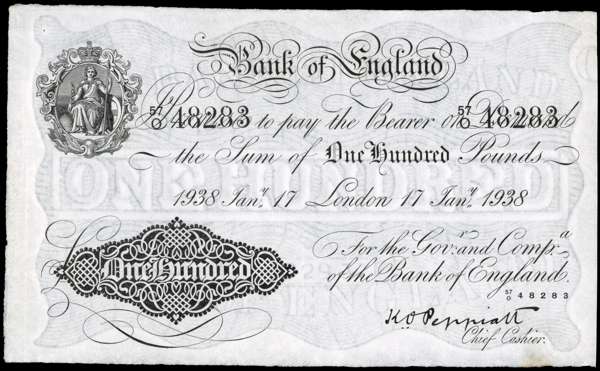 Bank of England
57/O 48283 57/O 48283
Promise to pay the Bearer on Demand
the Sum of One Hundred Pounds
1938 Jan.y 17 London 17 Jan.y 1938
For the Gov.r and Comp.a
of the Bank of England.
57/O 48283
One Hundred
K O Peppiatt
Chief Cashier.
ONE HUNDRED